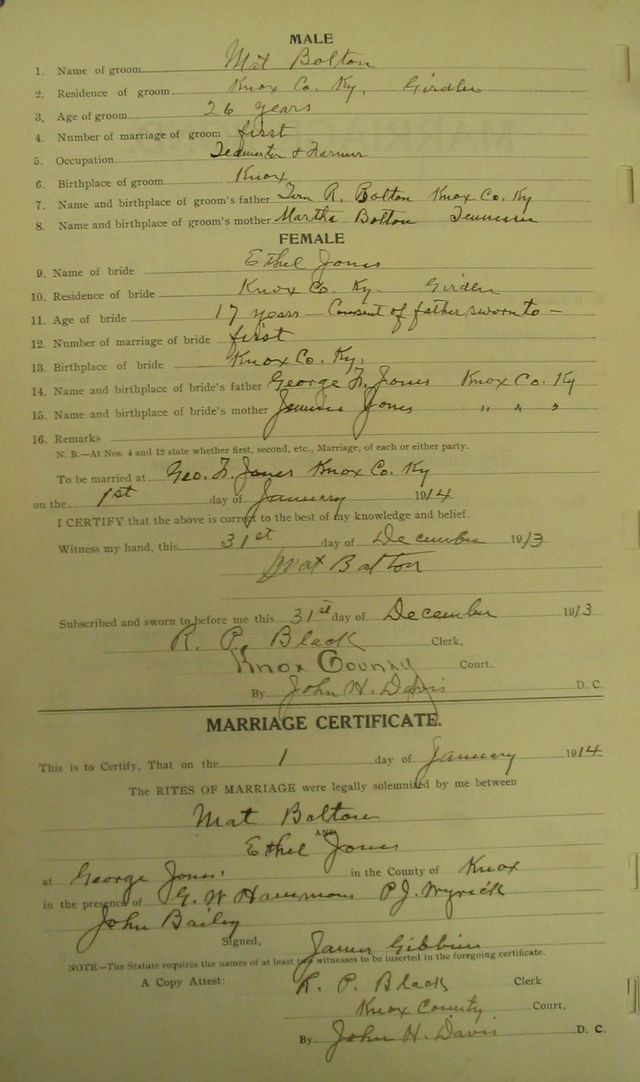 MALE
1. Name of groom Mat Bolton
2. Residence of groom Knox Co. Ky. Girdler
3. Age of groom 26 years
4. Number of marriage of groom first
5. Occupation Teamster & Farmer
6. Birthplace of groom Knox
7. Name and birthplace of groom's father R. Bolton Knox Co. Ky
8. Name and birthplace of groom's mother Martha Bolton Tennessee
FEMALE
9. Name of bride Ethel Jones
10. Residence of bride Knox Co. Ky. Girdler
11. Age of bride 17 years — Consent of father sworn to —
12. Number of marriage of bride first
13. Birthplace of bride Knox Co. Ky.
14. Name and birthplace of bride's father George F. Jones Knox Co. Ky
15. Name and birthplace of bride's mother Jennie Jones " " "
16. Remarks
N. B.—At Nos. 4 and 12 state whether first, second, etc., Marriage, of each or either party.
To be married at Geo. F. Jones Knox Co. Ky
on the 1st day of January 1914
I CERTIFY that the above is correct to the best of my knowledge and belief.
Witness my hand, this 31st day of December 1913
Mat Bolton
Subscribed and sworn to before me this 31st day of December 1913
R. P. Black Clerk,
Knox County Court.
By John H. Davis D. C.
MARRIAGE CERTIFICATE.
This is to Certify, That on the 1 day of January 1914
The RITES OF MARRIAGE were legally solemnized by me between
Mat Bolton
AND
Ethel Jones
at George Jones' in the County of Knox
in the presence of G. W Hammons P. J. Wyrick
John Bailey
Signed, James Gibbins
NOTE—The Statute requires the names of at least two witnesses to be inserted in the foregoing certificate.
A Copy Attest: R. P. Black Clerk
Knox County Court,
By John H. Davis D. C.